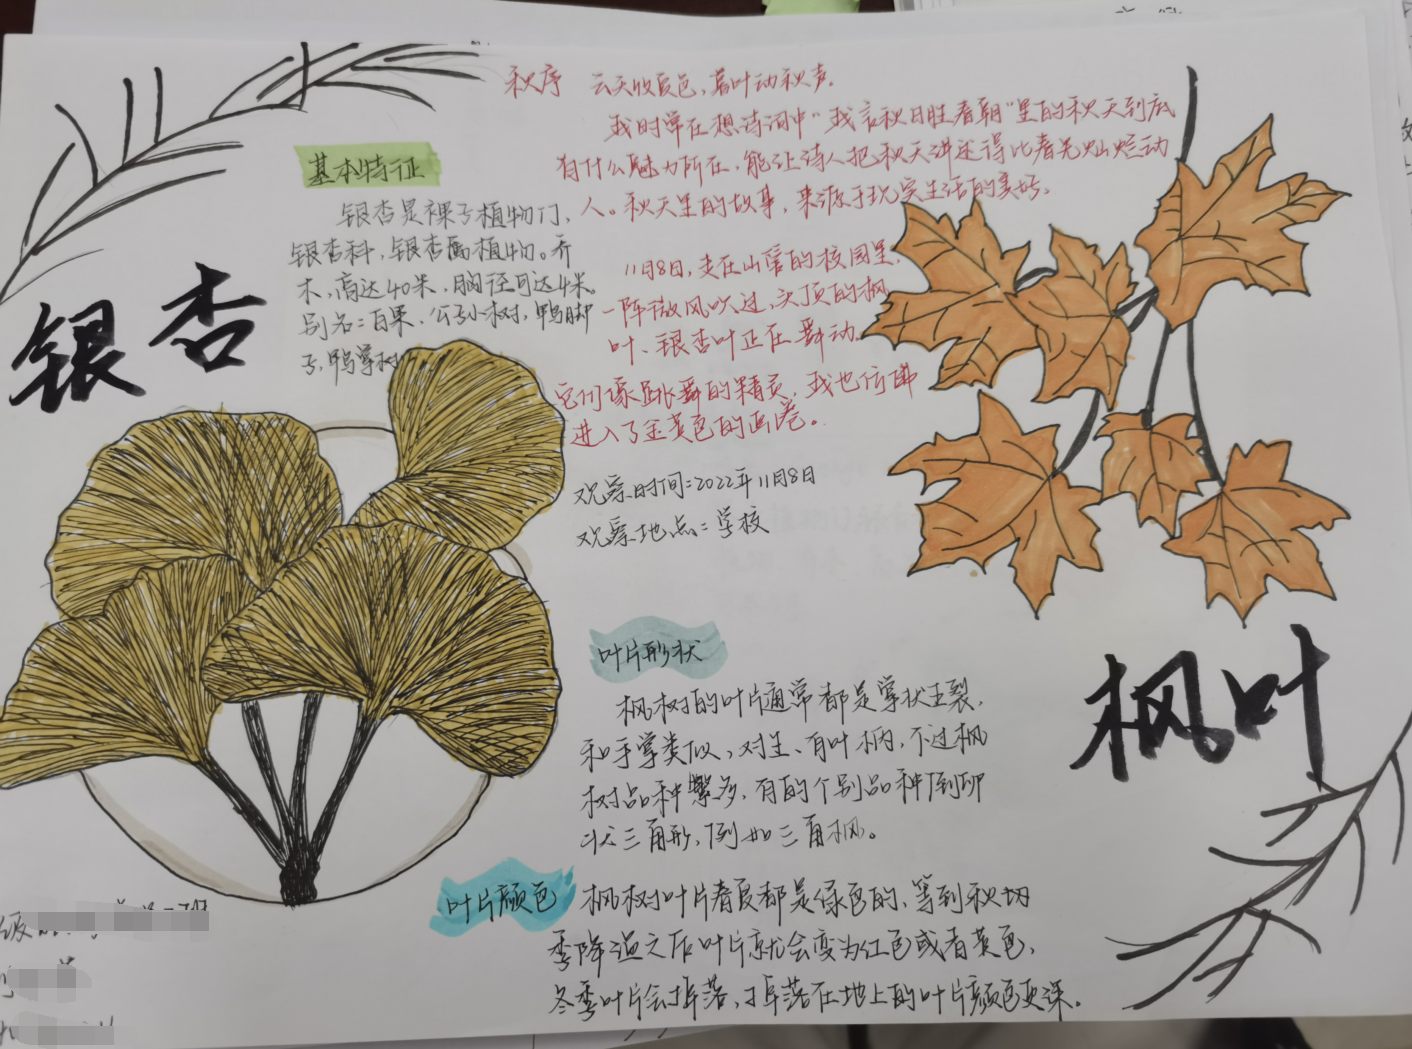 秋序 云天收夏色，落叶动秋声。
我时常在想诗词中"我言秋日胜春朝"里的秋天到底
有什么魅力所在，能让诗人把秋天讲述得比春光灿烂动
人。秋天里的故事，来源于现实生活的美好。
11月8日，走在山营的校园里，
一阵微风吹过，头顶的枫
叶、银杏叶正在舞动。
它们像跳舞的精灵，我也仿佛
进入了金黄色的画卷。
观察时间：2022年11月8日
观察地点：学校
基本特征
银杏是裸子植物门，
银杏科，银杏属植物。乔
木，高达40米，胸径可达4米。
别名：白果，公孙树，鸭脚
子，鸭掌树
银杏
枫叶
叶片形状
枫树的叶片通常都是掌状五裂，
和手掌类似，对生、有叶柄，不过枫
树品种繁多，有的个别品种倒卵
状三角形，例如三角枫。
叶片颜色
枫树叶片春夏都是绿色的，等到秋
季降温之后叶片就会变为红色或者黄色，
冬季叶片会掉落，掉落在地上的叶片颜色更深。
级